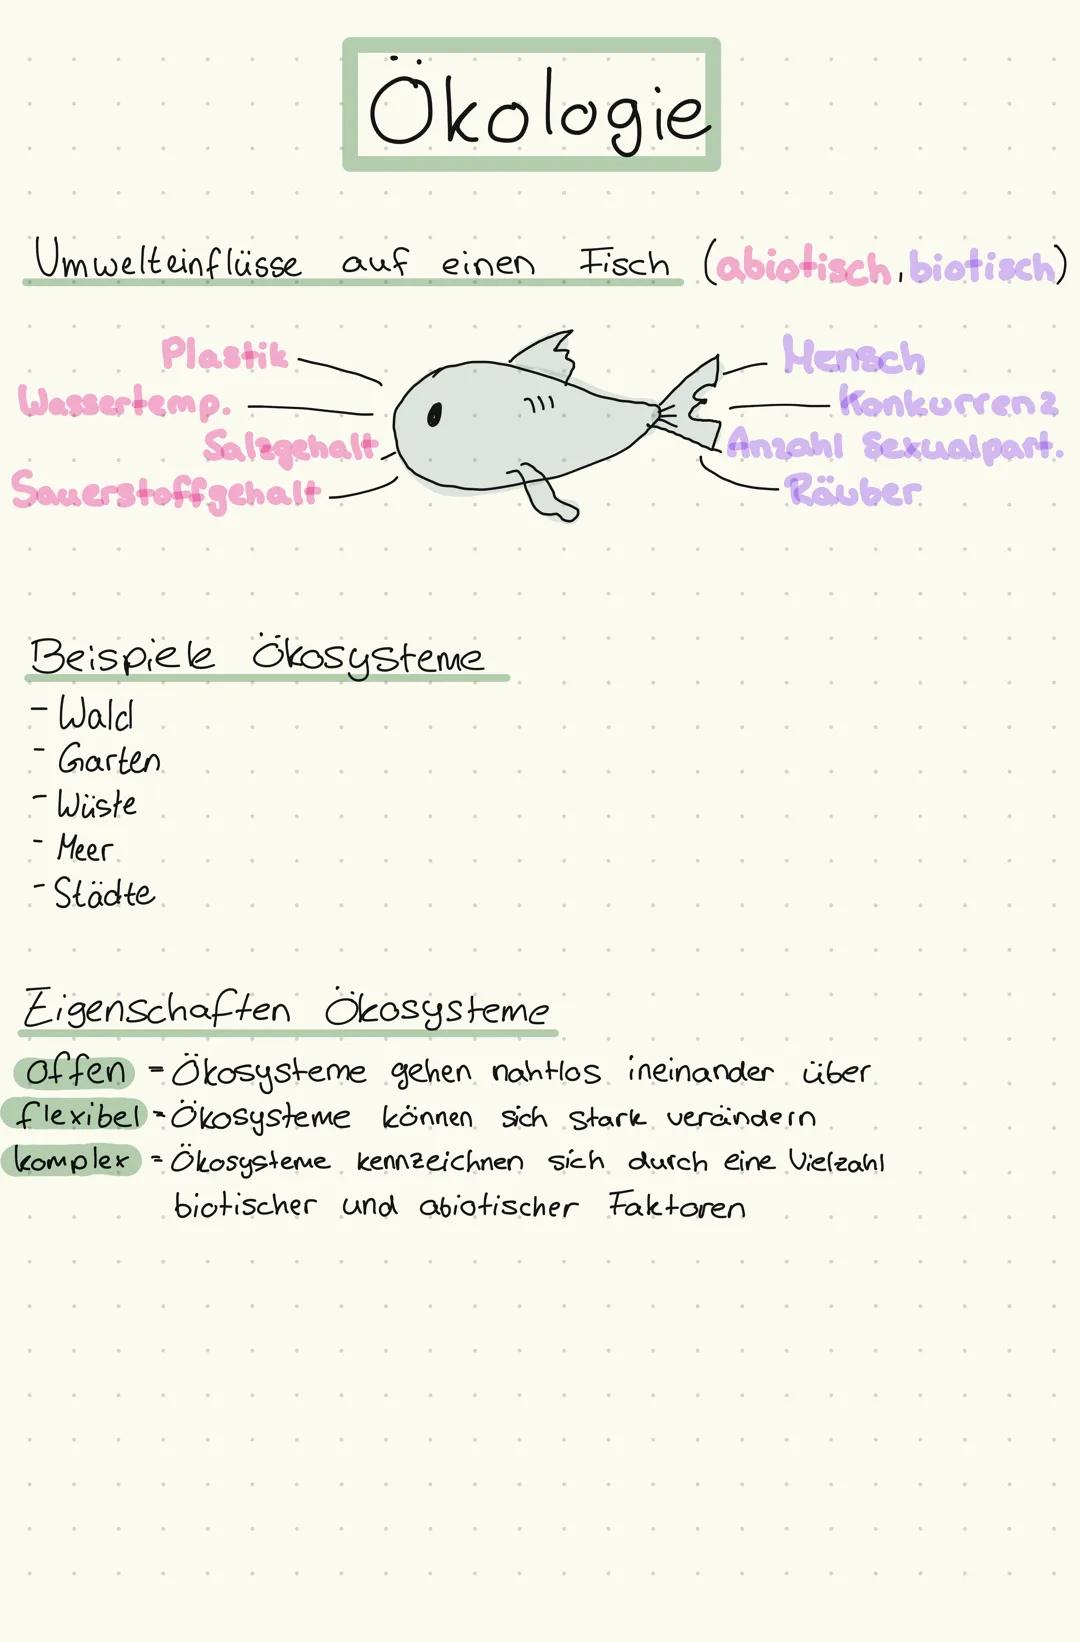 Ökologie
Umwelteinflüsse auf einen Fisch (abiotisch, biotisch)
Plastik
Mensch
Wassertemp.
Konkurrenz
Salzgehalt
Anzahl Sexualpart.
Sauerstoffgehalt
Räuber
Beispiele Ökosysteme
- Wald
- Garten
- Wüste
- Meer
- Städte
Eigenschaften Ökosysteme
offen = Ökosysteme gehen nahtlos ineinander über
flexibel = Ökosysteme können sich stark verändern
komplex = Ökosysteme kennzeichnen sich durch eine Vielzahl
biotischer und abiotischer Faktoren